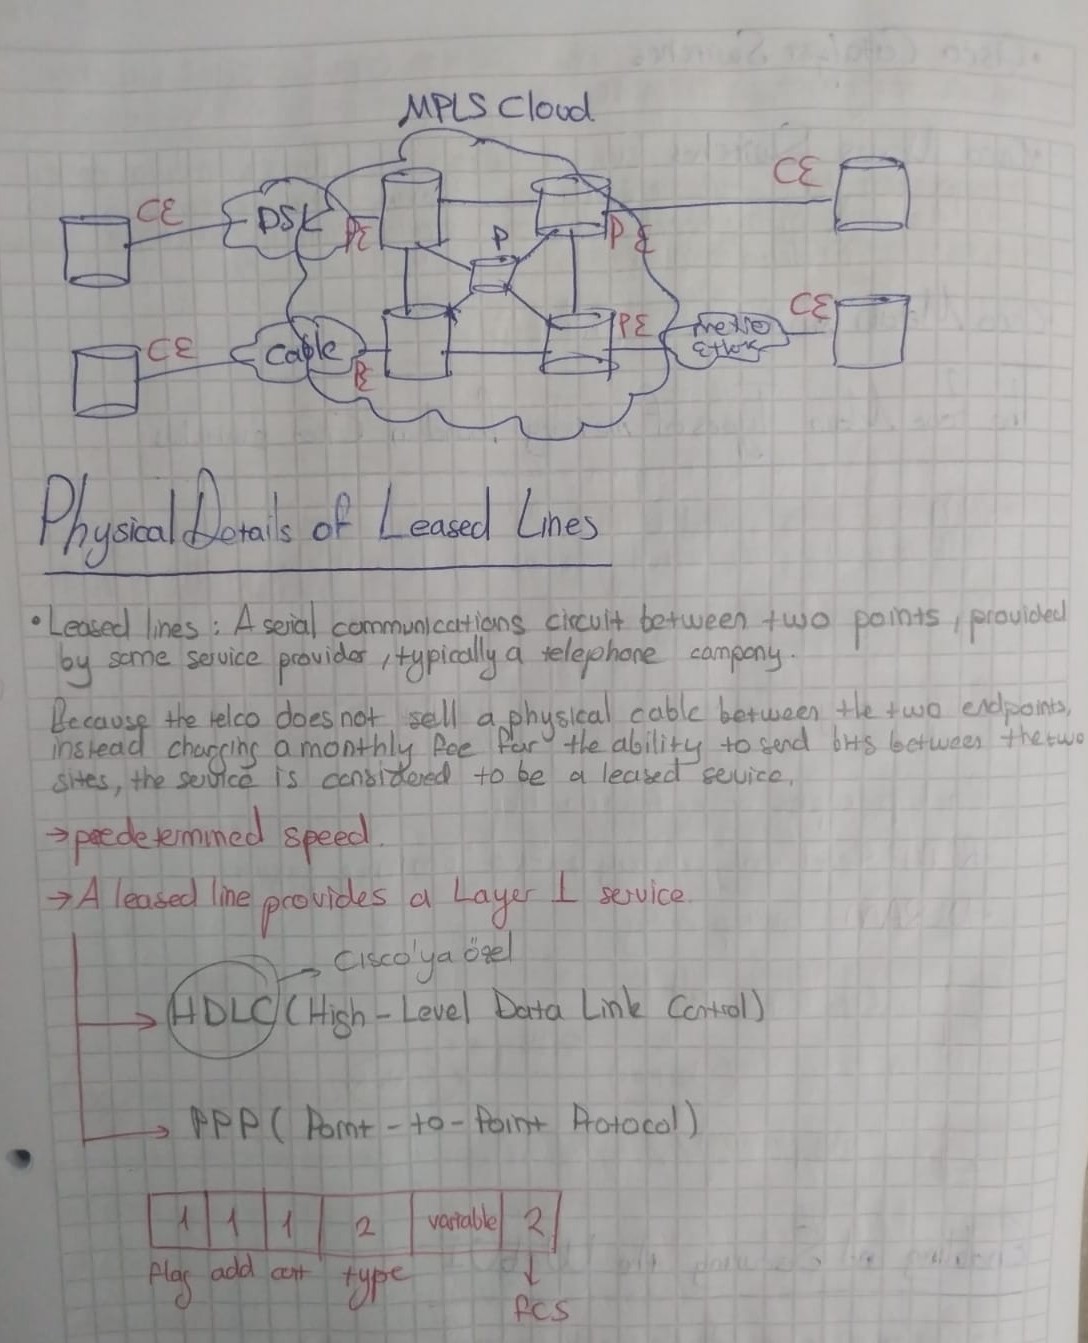 MPLS Cloud
CE
CE
DSL
PE
P
PE
CE
CE
Cable
PE
PE
Metro
CE
Physical Details of Leased Lines
• Leased lines : A serial communications circuit between two points, provided
by some service provider, typically a telephone company.
Because the telco does not sell a physical cable between the two endpoints,
instead charging a monthly fee for the ability to send bits between the two
sites, the service is considered to be a leased service.
→ predetermined speed.
→ A leased line provides a Layer 1 service.
→ Cisco'ya özel
→ HDLC (High-Level Data Link Control)
→ PPP (Point-to-Point Protocol)
1 1 1 2 variable 2
flag add cont type ↓
FCS